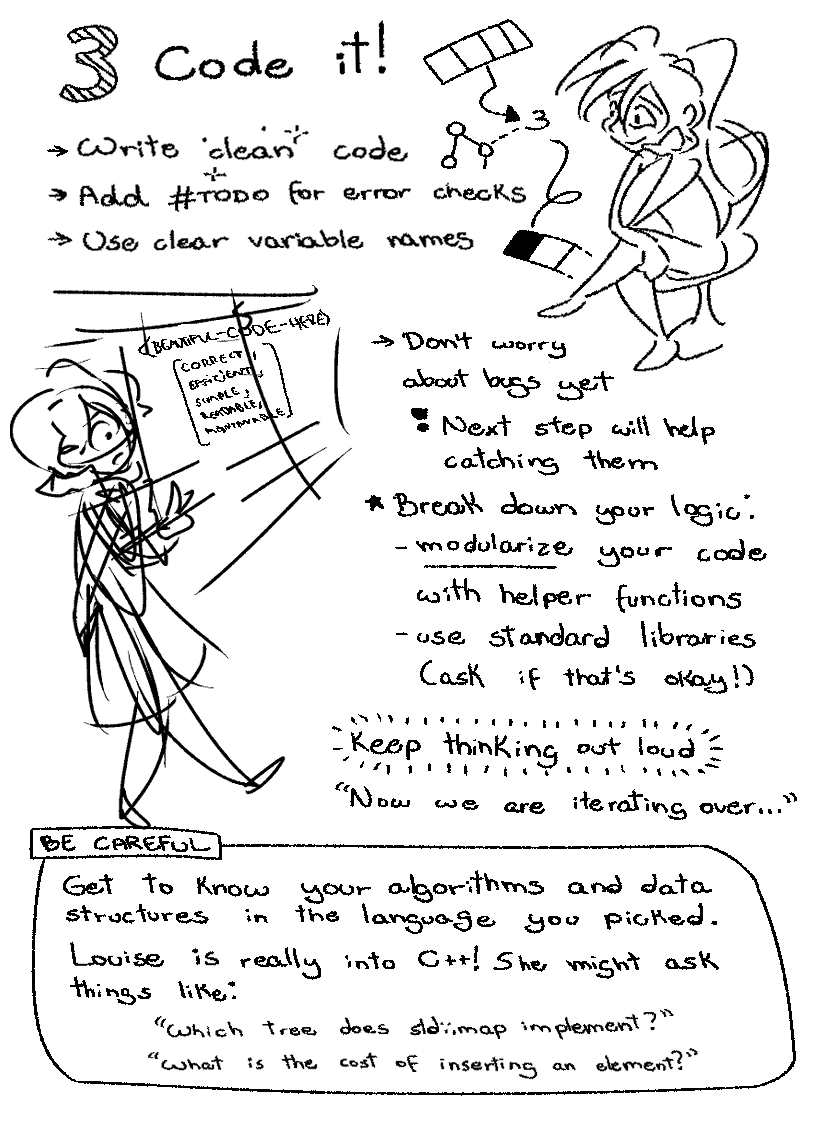 3 Code it!
→ Write "clean" code
→ Add #TODO for error checks
→ Use clear variable names
3
(BEAUTIFUL-CODE-HERE)
CORRECT,
EFFICIENT,
SIMPLE,
READABLE,
MAINTAINABLE
→ Don't worry
about bugs yet
Next step will help
catching them
★ Break down your logic:
- modularize your code
with helper functions
- use standard libraries
(ask if that's okay!)
Keep thinking out loud
"Now we are iterating over..."
BE CAREFUL
Get to know your algorithms and data
structures in the language you picked.
Louise is really into C++! She might ask
things like:
"Which tree does std::map implement?"
"What is the cost of inserting an element?"